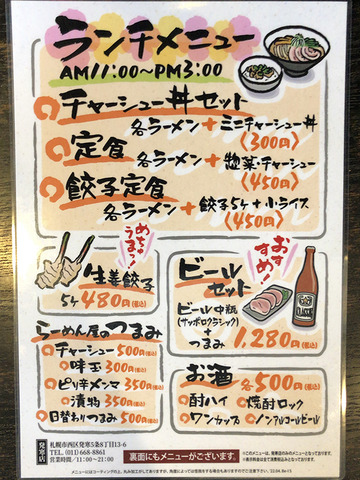 ランチメニュー
AM11:00〜PM3:00
チャーシュー丼セット
各ラーメン+ミニチャーシュー丼
(300円)
定食 各ラーメン+惣菜・チャーシュー
(450円)
餃子定食
各ラーメン+餃子5ヶ+小ライス
(450円)
めちゃうまっ!
生姜餃子
5ヶ480円(税込)
おすすめ!
ビールセット
ビール中瓶
(サッポロクラシック)
+
つまみ 1,280円(税込)
らーめん屋のつまみ
チャーシュー500円(税込)
味玉 300円(税込)
ピリ辛メンマ350円(税込)
漬物 350円(税込)
日替わりつまみ500円(税込)
お酒 各500円(税込)
酎ハイ 焼酎ロック
ワンカップ ノンアルコールビール
発寒店
札幌市西区発寒5条8丁目13-6
TEL. (011)668-8861
営業時間/11:00〜21:00
裏面にもメニューがございます。